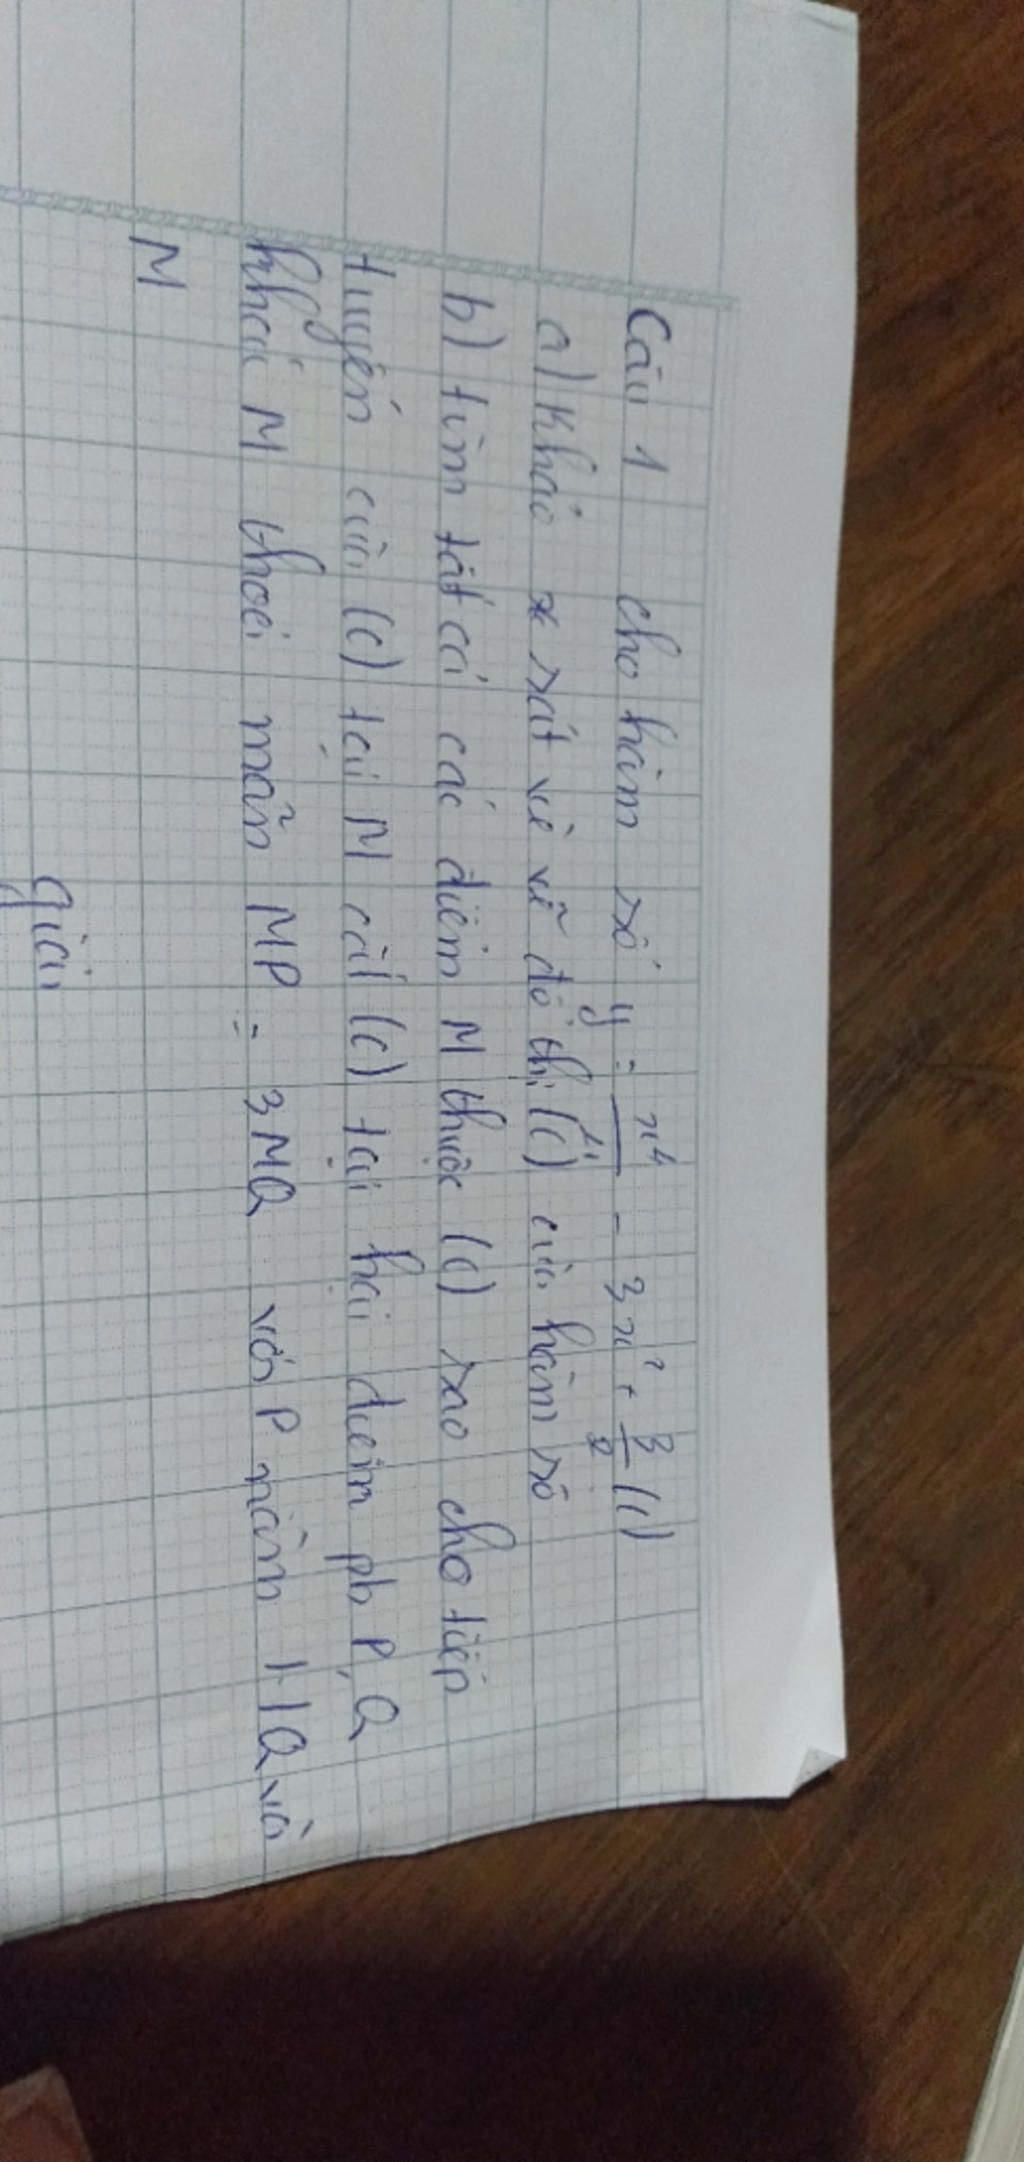 Câu 1 cho hàm số y = x⁴/2 - 3x² + 3/2 (C)
a) Khảo sát và vẽ đồ thị (C) của hàm số
b) tìm tất cả các điểm M thuộc (C) sao cho tiếp
tuyến của (C) tại M cắt (C) tại hai điểm pb P, Q
khác M thoả mãn MP = 3MQ với P nằm Q và
M
Giải